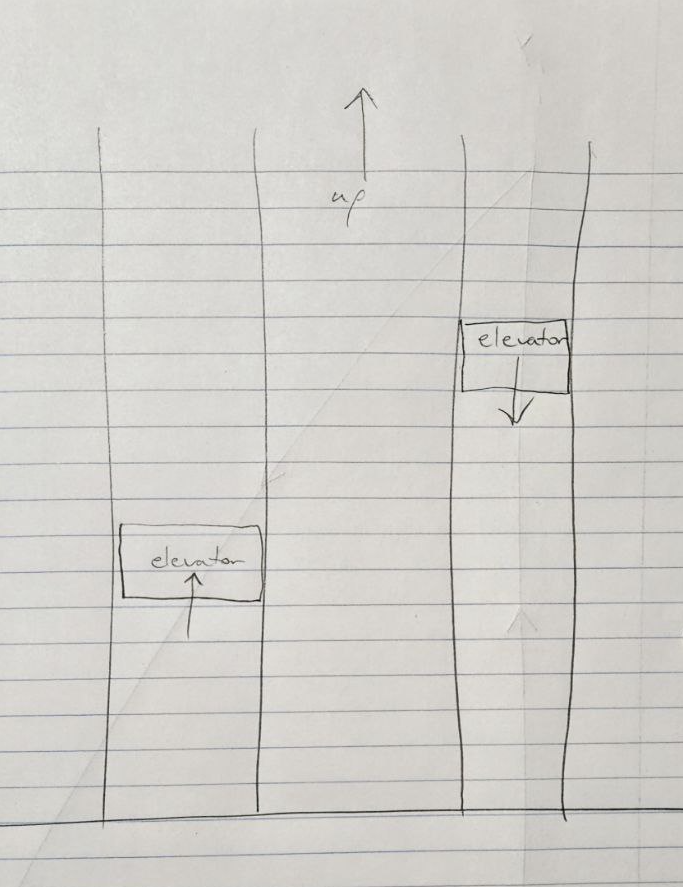 up
elevator
elevator